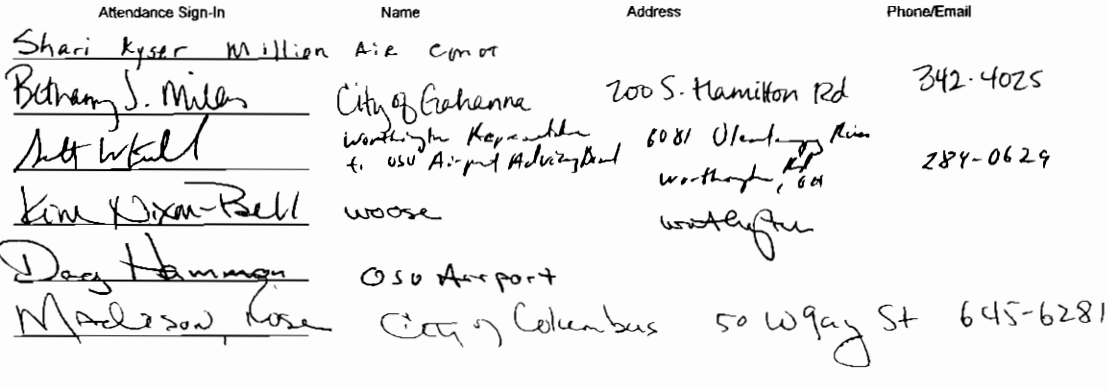 Attendance Sign-In Name Address Phone/Email
Shari Kyser Million Air CMOT
Bethany J. Miles City of Gahanna 200 S. Hamilton Rd 342-4025
Worthington Representative 6081 Olentangy River
to OSU Airport Advisory Board Rd 284-0629
Worthington, OH
Kim Nixon-Bell WOOSE Worthington
Doug Hammon OSU Airport
Madison Rose City of Columbus 50 W Gay St 645-6281